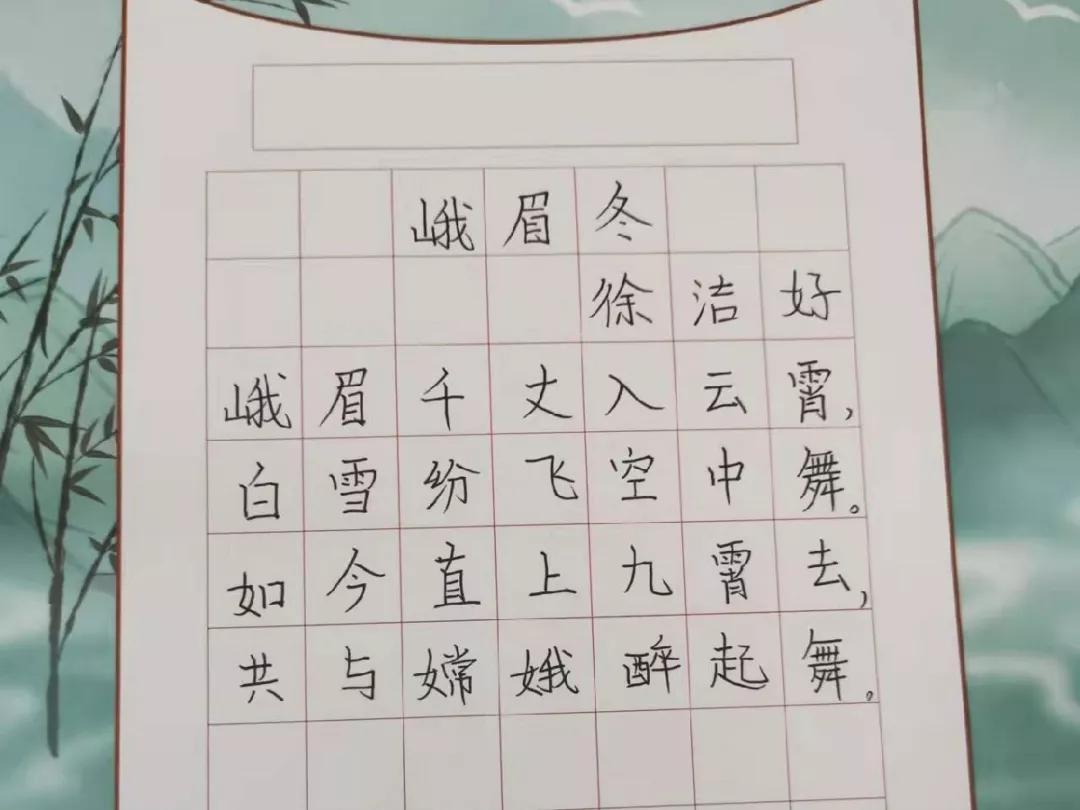 峨眉冬
徐洁好
峨眉千丈入云霄,
白雪纷飞空中舞。
如今直上九霄去,
共与嫦娥醉起舞。